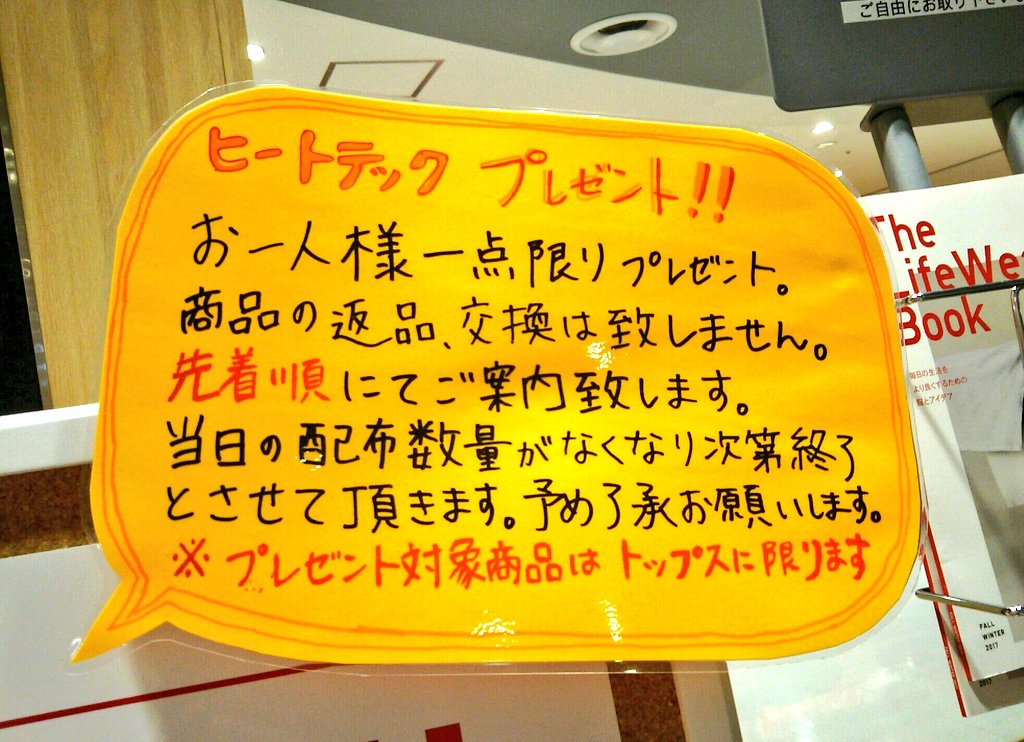 ご自由にお取り下さい
ヒートテック プレゼント!!
お一人様一点限りプレゼント。
商品の返品、交換は致しません。
先着順にてご案内致します。
当日の配布数量がなくなり次第終了
とさせて頂きます。予め了承お願いします。
※プレゼント対象商品はトップスに限ります
The
LifeWear
Book
毎日の生活を
より良くするための
服とアイデア
FALL
WINTER
2017
2017